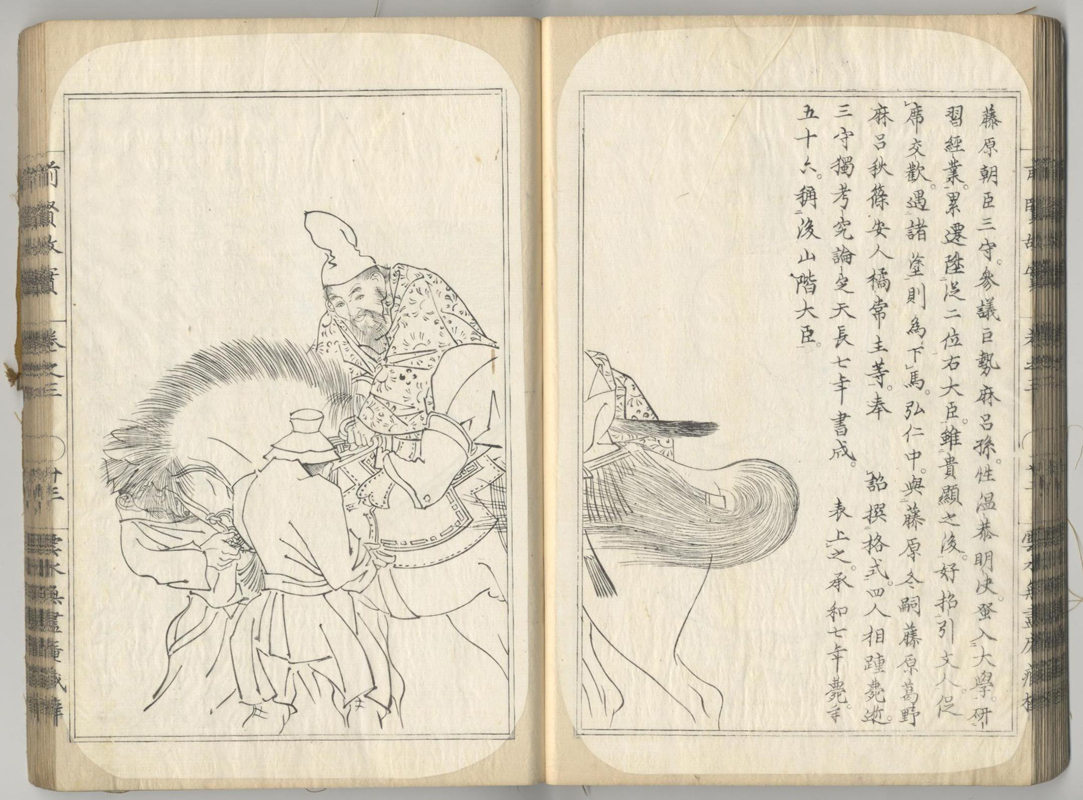 藤原朝臣三守。參議巨勢麻呂孫。性温恭明决。蚤入大學。研
習經業。累遷陞從二位右大臣。雖貴顯之後。好招引文人促
席交歡。遇諸塗則為下馬。弘仁中。與藤原冬嗣藤原葛野
麻呂秋篠安人橘常主等。奉 詔撰格式。四人相踵薨逝。
三守獨考究論定天長七年書成。 表上之。承和七年薨。年
五十六。稱後山階大臣。
前賢故實 卷之三 十三